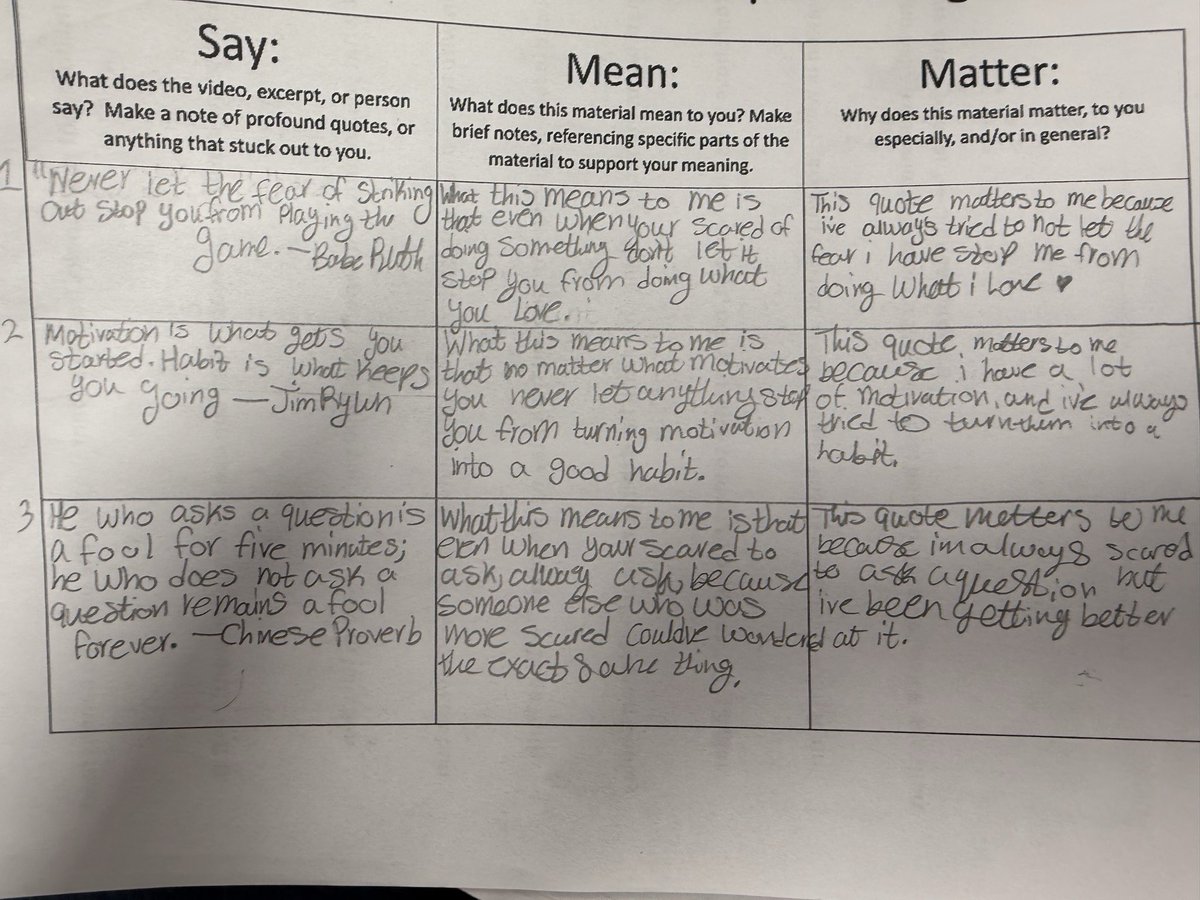 Say:
What does the video, excerpt, or person
say? Make a note of profound quotes, or
anything that stuck out to you.
Mean:
What does this material mean to you? Make
brief notes, referencing specific parts of the
material to support your meaning.
Matter:
Why does this material matter, to you
especially, and/or in general?
1
"Never let the fear of striking
Out stop you from Playing the
game. —Babe Ruth
What this means to me is
that even when your scared of
doing something don't let it
stop you from doing what
you Love.
This quote matters to me because
i've always tried to not let the
fear i have stop me from
doing What i Love ♥
2
Motivation is what gets you
started. Habit is what keeps
you going —Jim Ryun
What this means to me is
that no matter what motivates
you never let anything stop
you from turning motivation
into a good habit.
This quote, matters to me
because i have a lot
of motivation, and i've always
tried to turn them into a
habit.
3
He who asks a question is
a fool for five minutes;
he who does not ask a
question remains a fool
forever. —Chinese Proverb
What this means to me is that
even when your scared to
ask, alway ask, because
someone else who was
more scared Could've wonderd
the exact same thing.
This quote metters to me
because im always scared
to ask a question but
ive been getting better
at it.